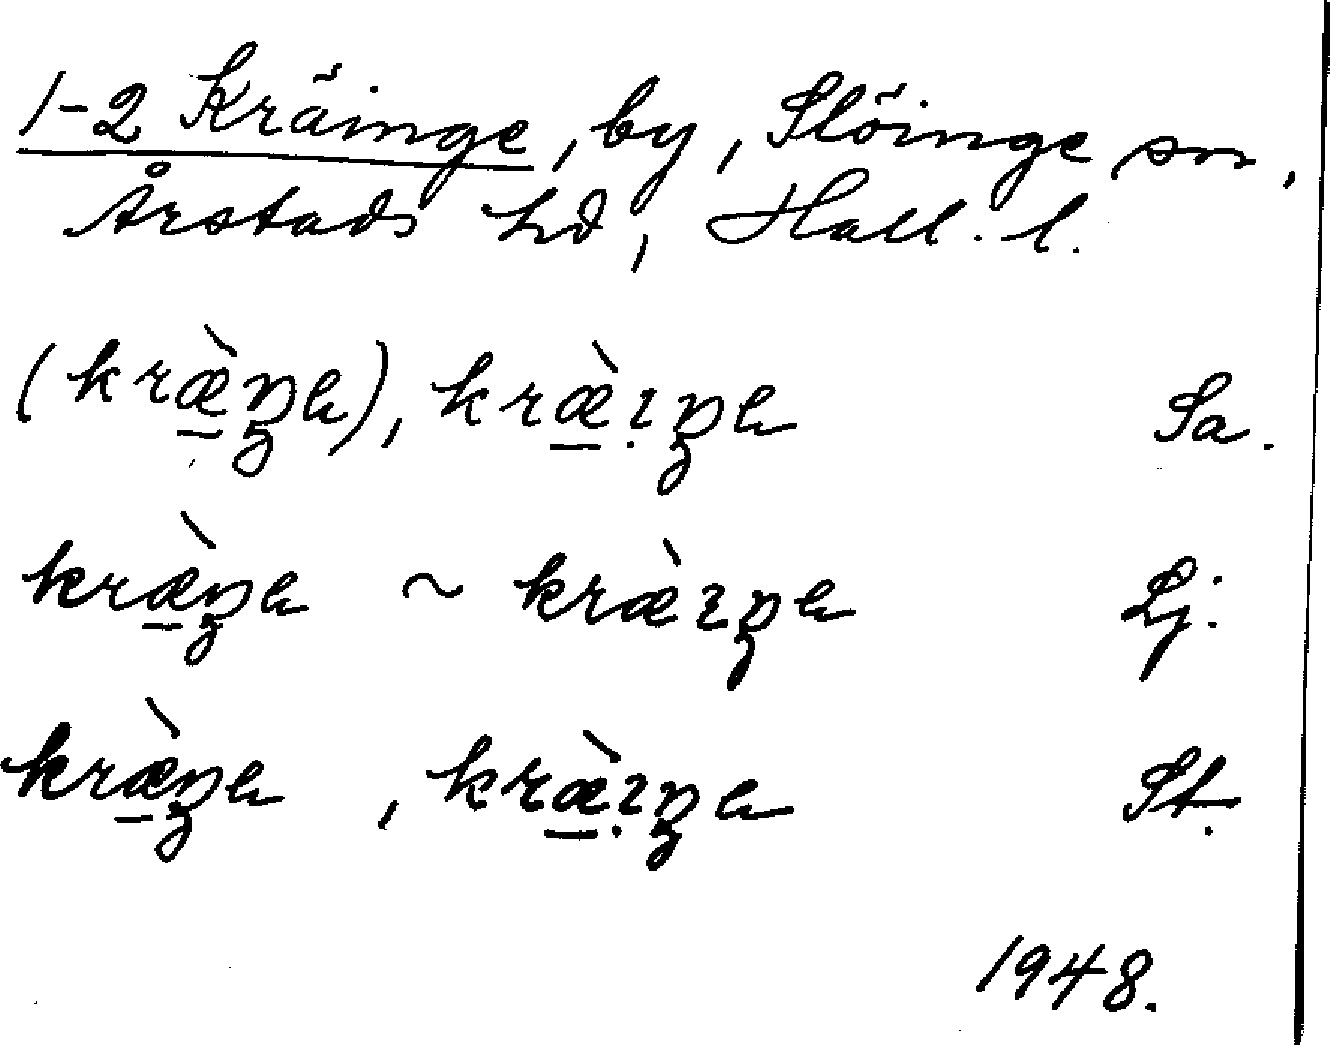 1-2 Kräinge, by, Slöinge sn,
Årstads hd, Hall. l.
(kræ̀ŋe), kræ̀ıŋe Sa.
kræ̀ŋe ~ kræ̀ıŋe Lj.
kræ̀ŋe, kræ̀ıŋe St.
1948.